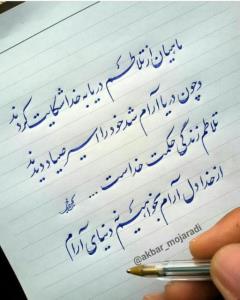 ماهیان از تلاطم دریا به خدا شکایت کردند
و چون دریا آرام شد خود را اسیر صیاد دیدند
تلاطم زندگی حکمت خداست ...
از خدا دل آرام بخواهیم نه دنیای آرام
@akbar_mojaradi